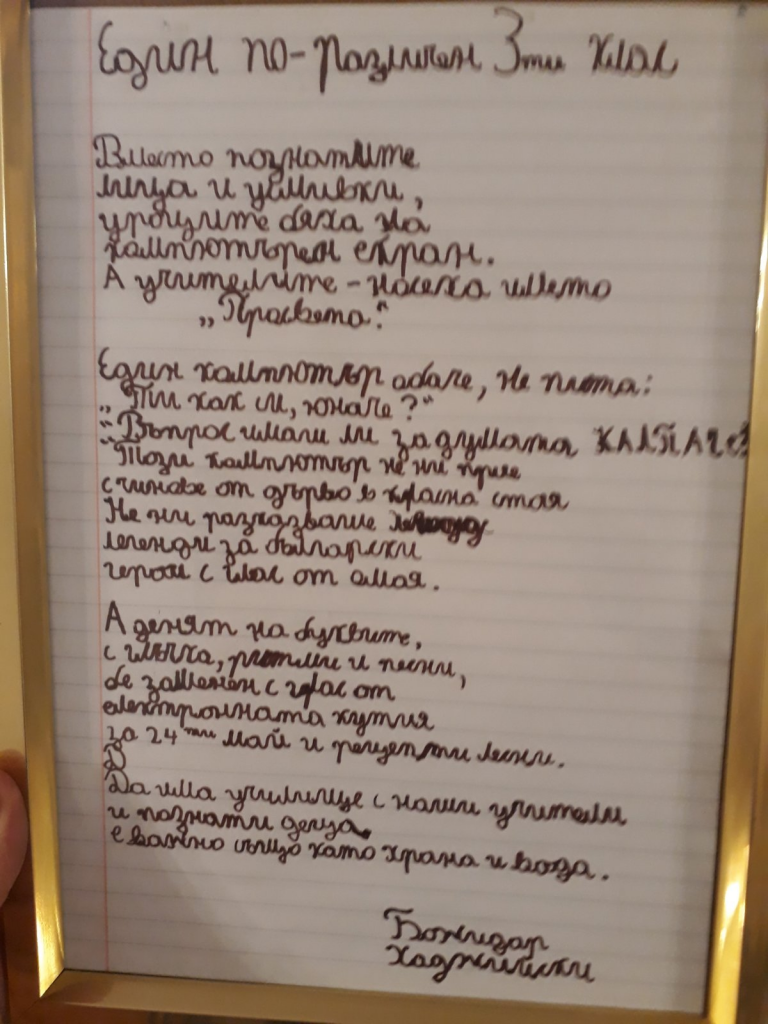 Един по-различен 3ти клас
Вместо познатите
лица и усмивки,
уроците бяха на
компютърен екран.
А учителите - носеха името
„Просвета“.
Един компютър обаче, не пита:
„Ти как си, юначе?“
„Въпрос имали ли за думата КАЛПАЧЕ?
Този компютър не ни прие
с чинове от дърво в красна стая
Не ни разказваше
легенди за български
герои с глас от омая.
А денят на буквите,
с глъчка, ритми и песни,
бе заменен с глас от
електронната кутия
за 24ти май и рецепти лесни.
Да има училище с наши учители
и познати деца
е важно също като храна и вода.
Божидар
Хаджийски